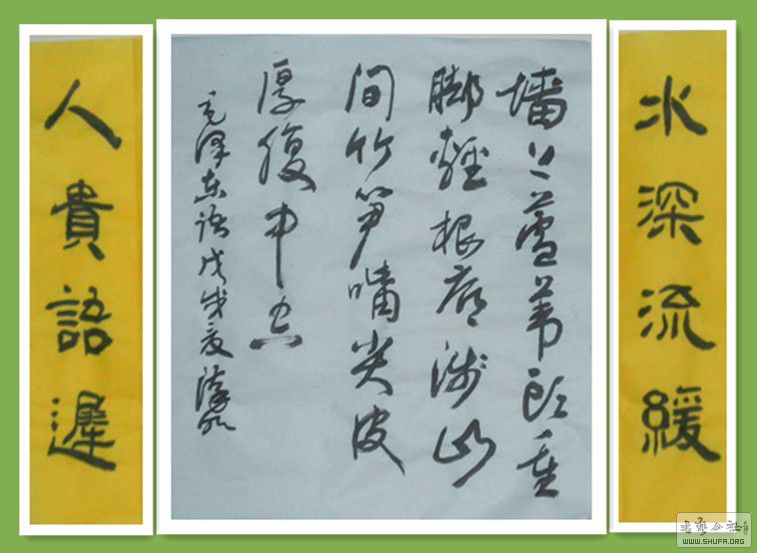 水深流緩
墙上蘆苇頭重
脚輕根底浅山
间竹笋嘴尖皮
厚復中空
毛泽东语戊戌夏
人貴語遲
書藝公社
WWW.SHUFA.ORG